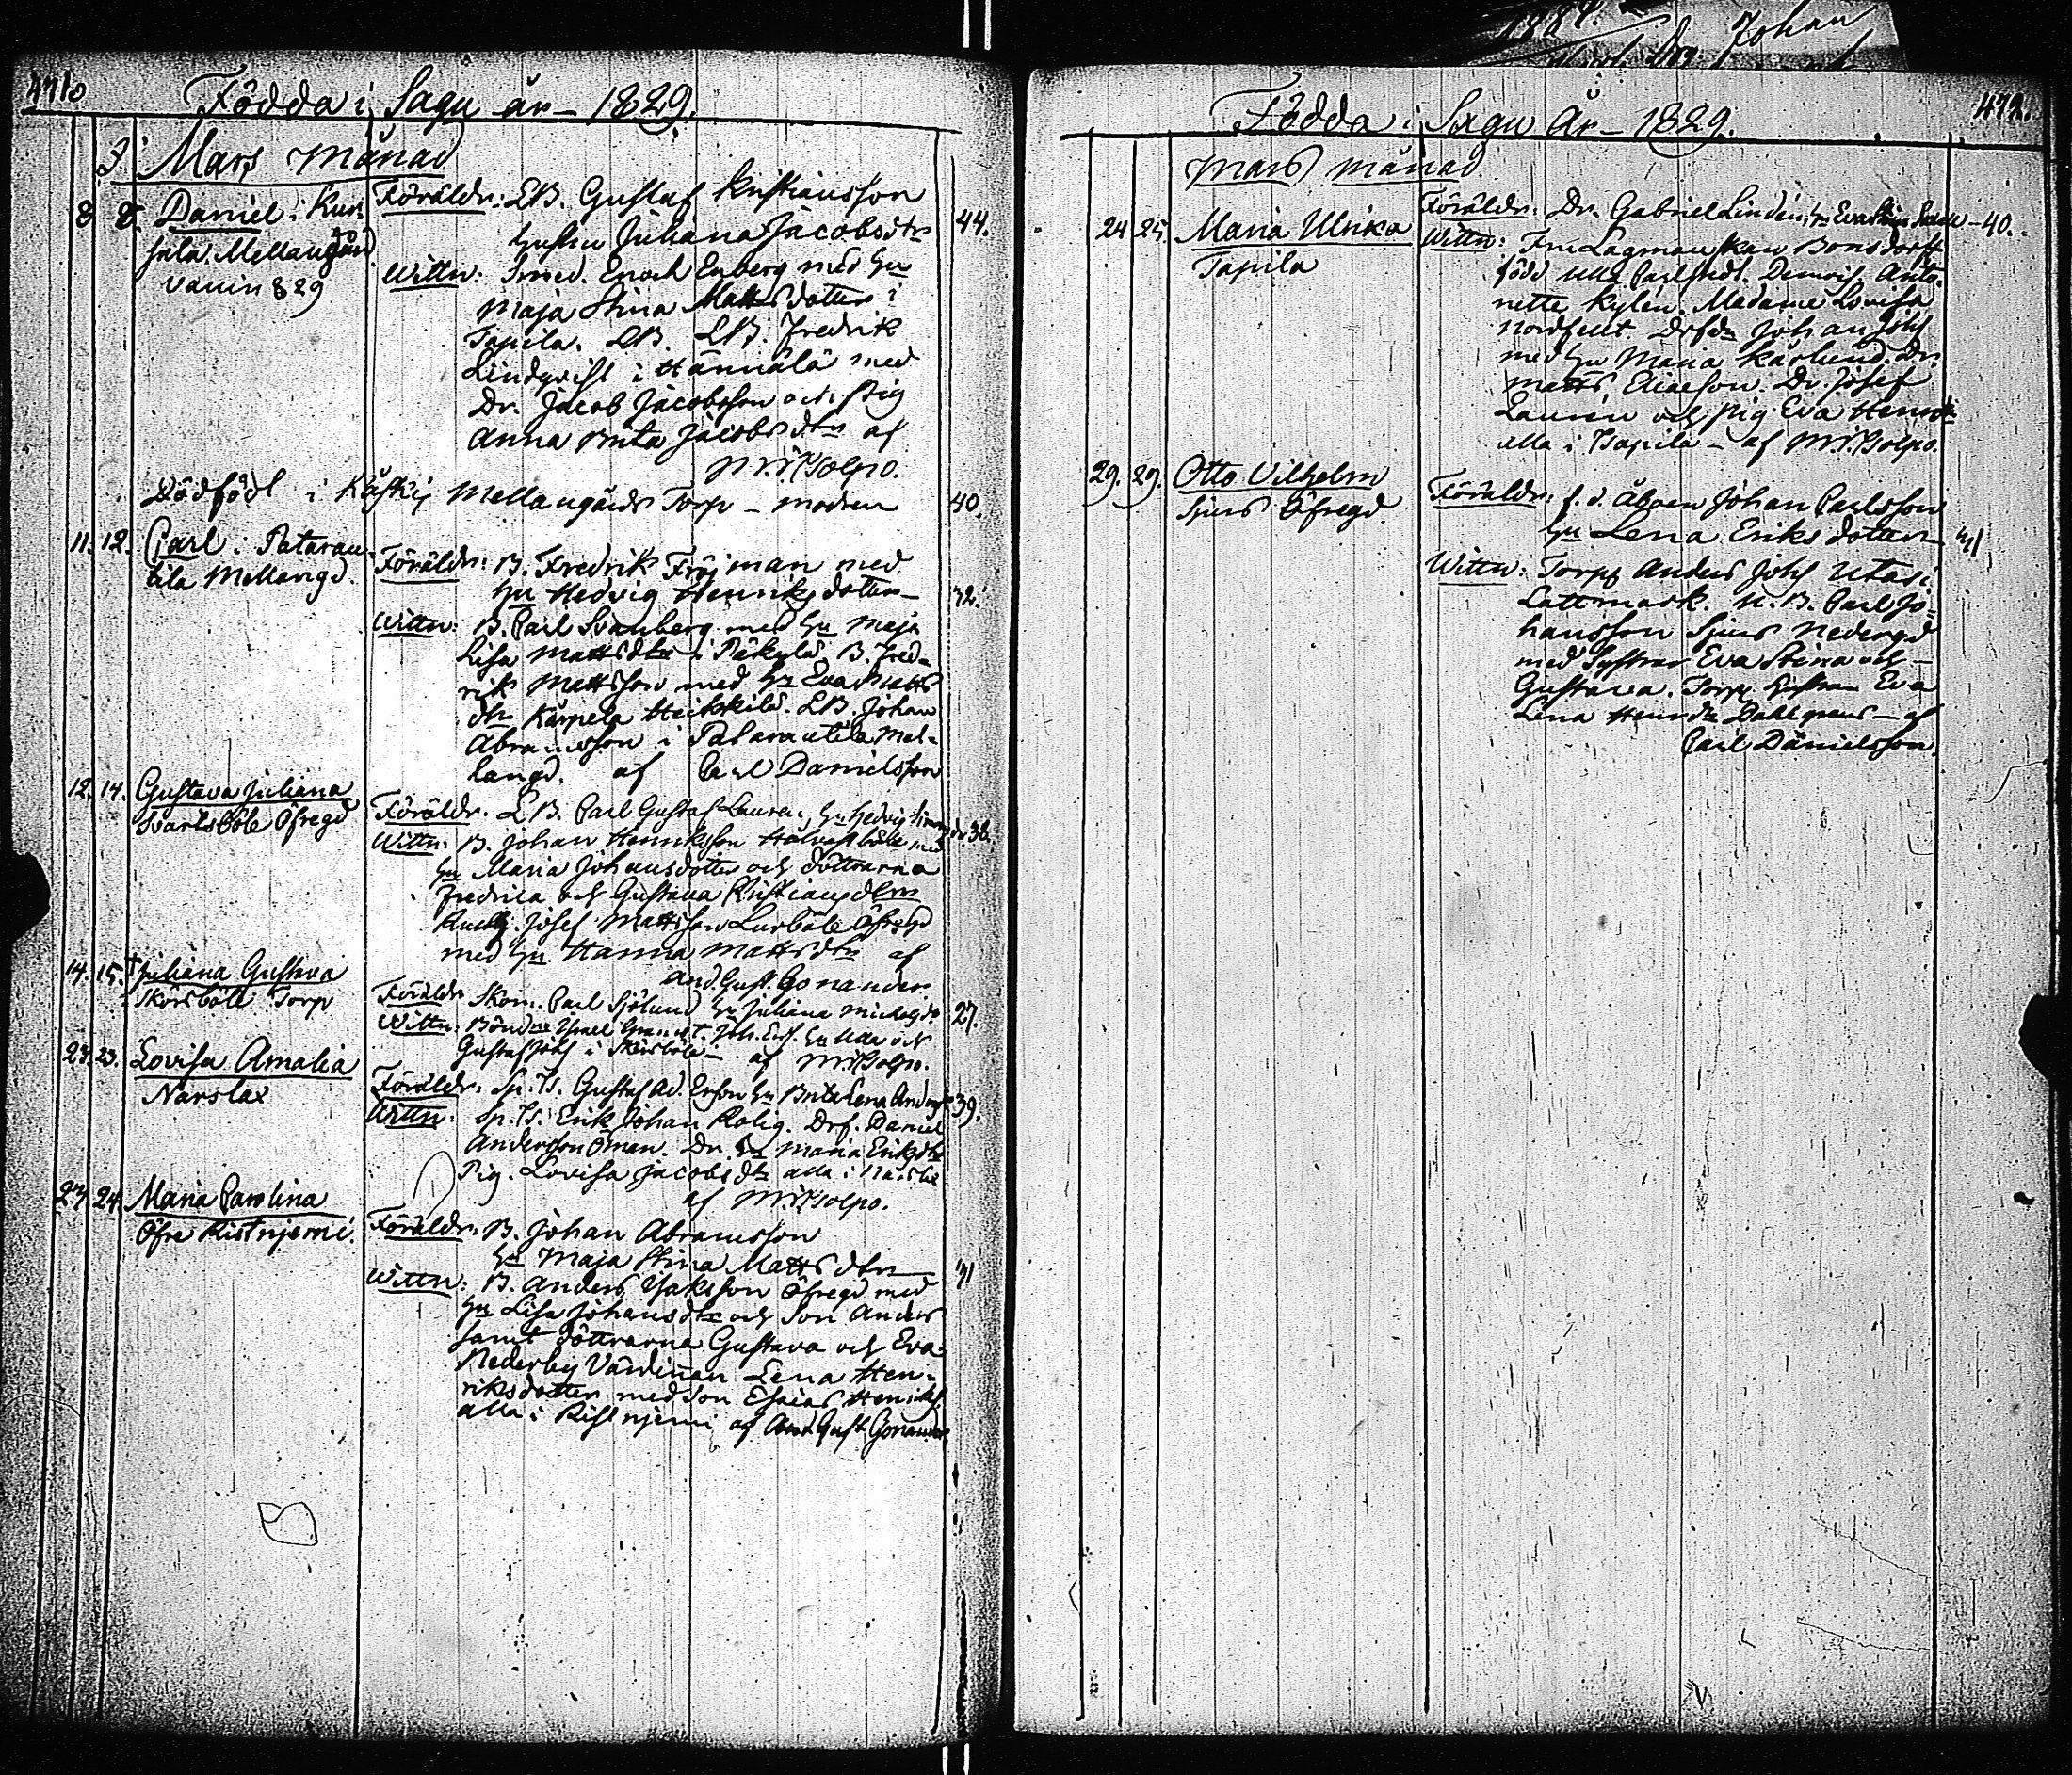 471.
Födda i Sagu år 1829.
3. Mars Månad
8 8. Daniel i Kur-
jala Mellangård
Föräldr: LB. Gustaf Kristiansson
Hustru Juliana Jacobsdtr 44.
Wittn: Smed. Enoch Enberg med Hu
Maja Stina Mattsdotter i
Tapila. LB. LB. Fredrik
Lindqvist i Hännälä med
Dr. Jacob Jacobsson och Pig
Anna Brita Jacobsdtr af
Dödfödt i Käskis Mellangårds Torp – modren 40.
11. 12. Carl i Patarau-
tila Mellangd.
Föräldr: B. Fredrik Fröjman med
Hu Hedvig Henriksdotter – 32.
Wittn: B. Carl Svanberg med Hu Maja
Lisa Mattsdtr i Päkylä B. Fred-
rik Mattsson med Hu Eva Matts
dtr Kärpelä Heikkilä. LB. Johan
Abramsson i Patarautila Mel-
langd. af Carl Danielsson
12. 14. Gustava Juliana
Svartsböle Öfregd
Föräldr. LB. Carl Gustaf Lauren, Hu Hedvig 38.
Wittn: B. Johan Henriksson med
Hu Maria Johansdotter och döttrarna
Fredrica och Gustava Kristiansdtrar
Josef Mattsson Lurböle Öfregd
med Hu Hanna Mattsdtr af
And. Gust. Gonander
14. 15. † Juliana Gustava
Skorsböle Torp
Föräldr Skom. Carl Sjölund Hu Juliana 27.
Wittn: Bönderne Israel Joh. Hu Ulla och
Gustaf Johs i Skorsböle – af
23. 23. Lovisa Amalia
Närslax
Föräldr: Sp. Is. Gustaf Ad. Hu Brita Lena 39.
Wittn: Sp. Is. Erik Johan Rolig. Drf. Daniel
Andersson Öman. Dr. Hu Maria Eriksdtr
Pig. Lovisa Jacobsdtr alla i
af
23. 24. Maria Carolina
Öfre Ristnjemi.
Föräldr: B. Johan Abramsson
Hu Maja Stina Mattsdtr – 31
Wittn: B. Anders Isaksson Öfregd med
Hu Lisa Johansdtr och Son Anders
samt döttrarna Gustava och Eva.
Nederby Värdinnan Lena Hen-
riksdotter med Son Esaias Henriks.
alla i Ristnjemi af And. Gust. Gonander.
472.
Födda i Sagu År – 1829.
Mars månad
24 25. Maria Ulrika
Tapila
Föräldr: Dr. Gabriel Linden, Hu Eva – 40.
Wittn: Fru Lagmanskan Bonsdorff
född Ulla Demois. Anto-
nette Kylen. Madame Lovisa
Johan Johs
med Hu Maria Dr.
Matts Eliaeson. Dr. Josef
Laurin och Pig Eva
alla i Tapila – af
29. 29. Otto Vilhelm
Sjus Öfregd.
Föräldr: f. d. Åboen Johan Carlsson
Hu Lena Eriksdotter
Wittn: Torp Anders Johs Utas i
Lättmark. U. B. Carl Jo-
hansson Sjus Nedergd
med Systrar Eva Stina och –
Gustava. Torp Hustru Eva
Lena Henrdtr Dahlgrens – af
Carl Danielsson.
1884.
Johan